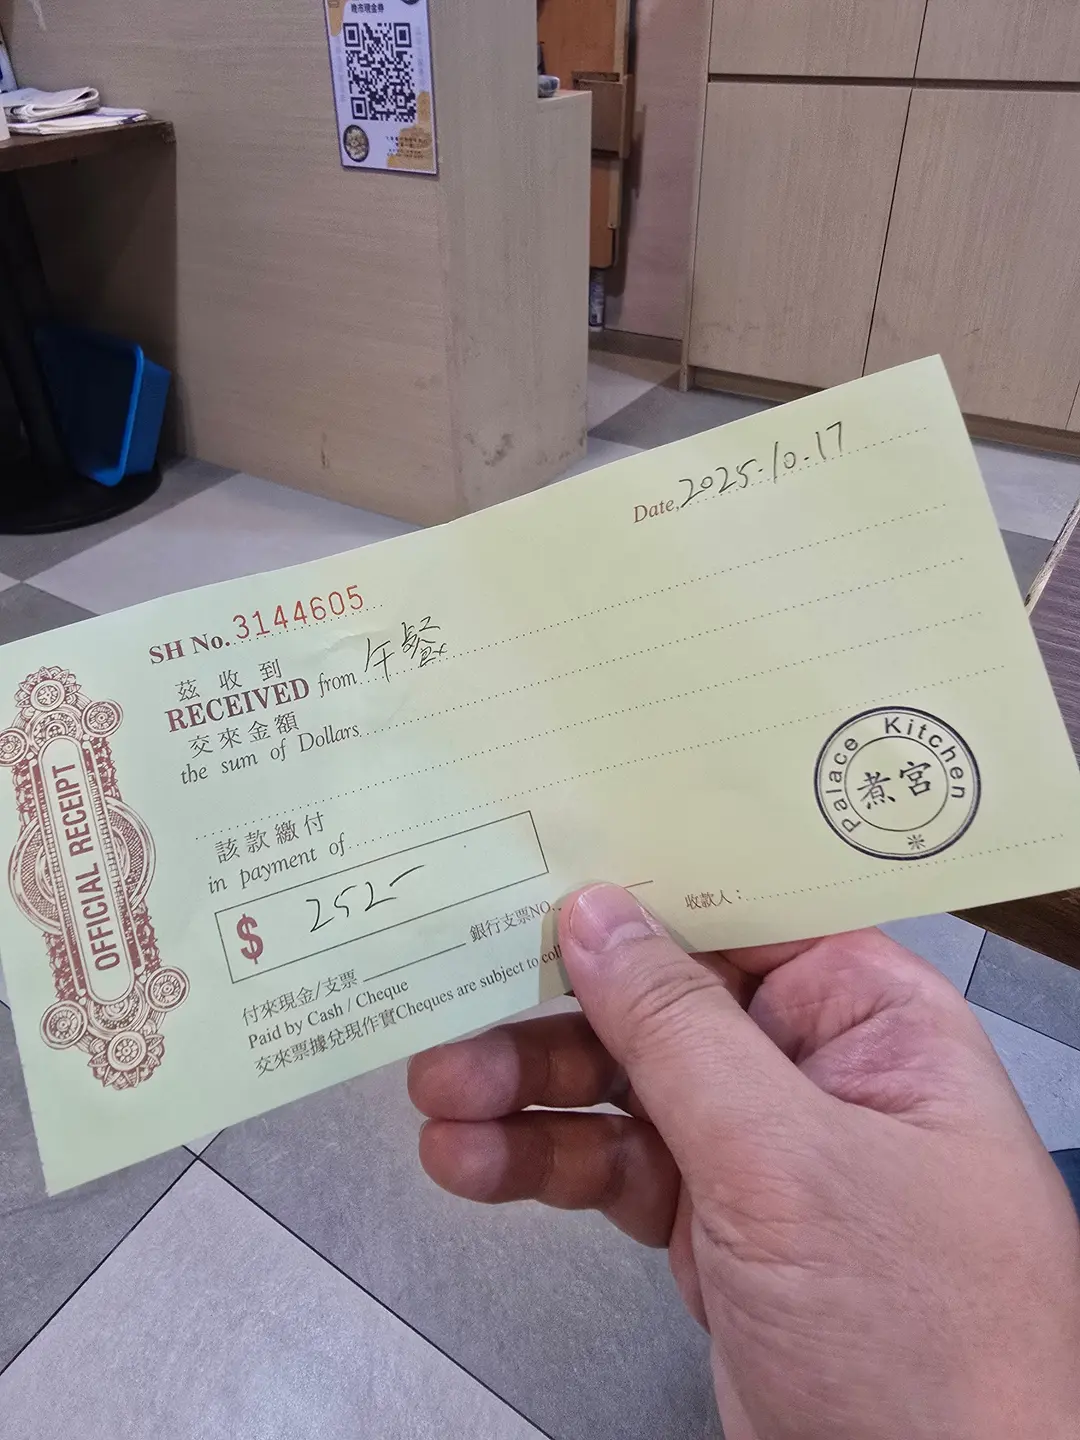 晚市現金券
Date, 2025.10.17
SH No. 3144605
茲收到
RECEIVED from 午餐
交來金額
the sum of Dollars
該款繳付
in payment of
$ 252-
銀行支票NO.
收款人：
付來現金/支票
Paid by Cash / Cheque
交來票據兌現作實Cheques are subject to
OFFICIAL RECEIPT
Palace Kitchen
煮宮